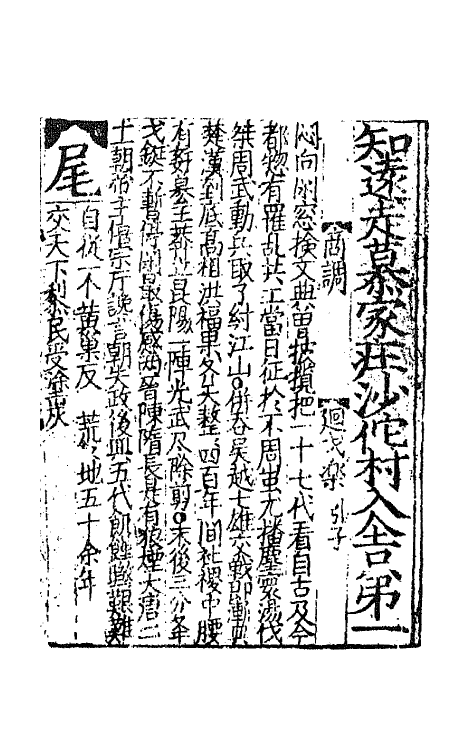 知遠走慕家庄沙佗村入舍第一
商調 迴戈楽 引子
悶向閑窓檢文典曾披攬把一十七代看自古及今
都惣有罹乱共工當日征於不周蚩尤播塵寰湯伐
桀周武動兵取了紂江山○併吞吳越七雄交戰即漸興
楚漢到底高祖洪福果齐天整整四百年間社稷中腰
有奸篡王莽立昆陽一陣光武尽除剪○末後三分举
戈鋋不暫停閑最傷感兩晉陳隋長是有狼煙大唐二
十一朝帝主僖宗听讒言朝失政後興五代飢饉煞艱難
尾 自従一个黃巢反 荒々地五十余年
交天下黎民受塗炭